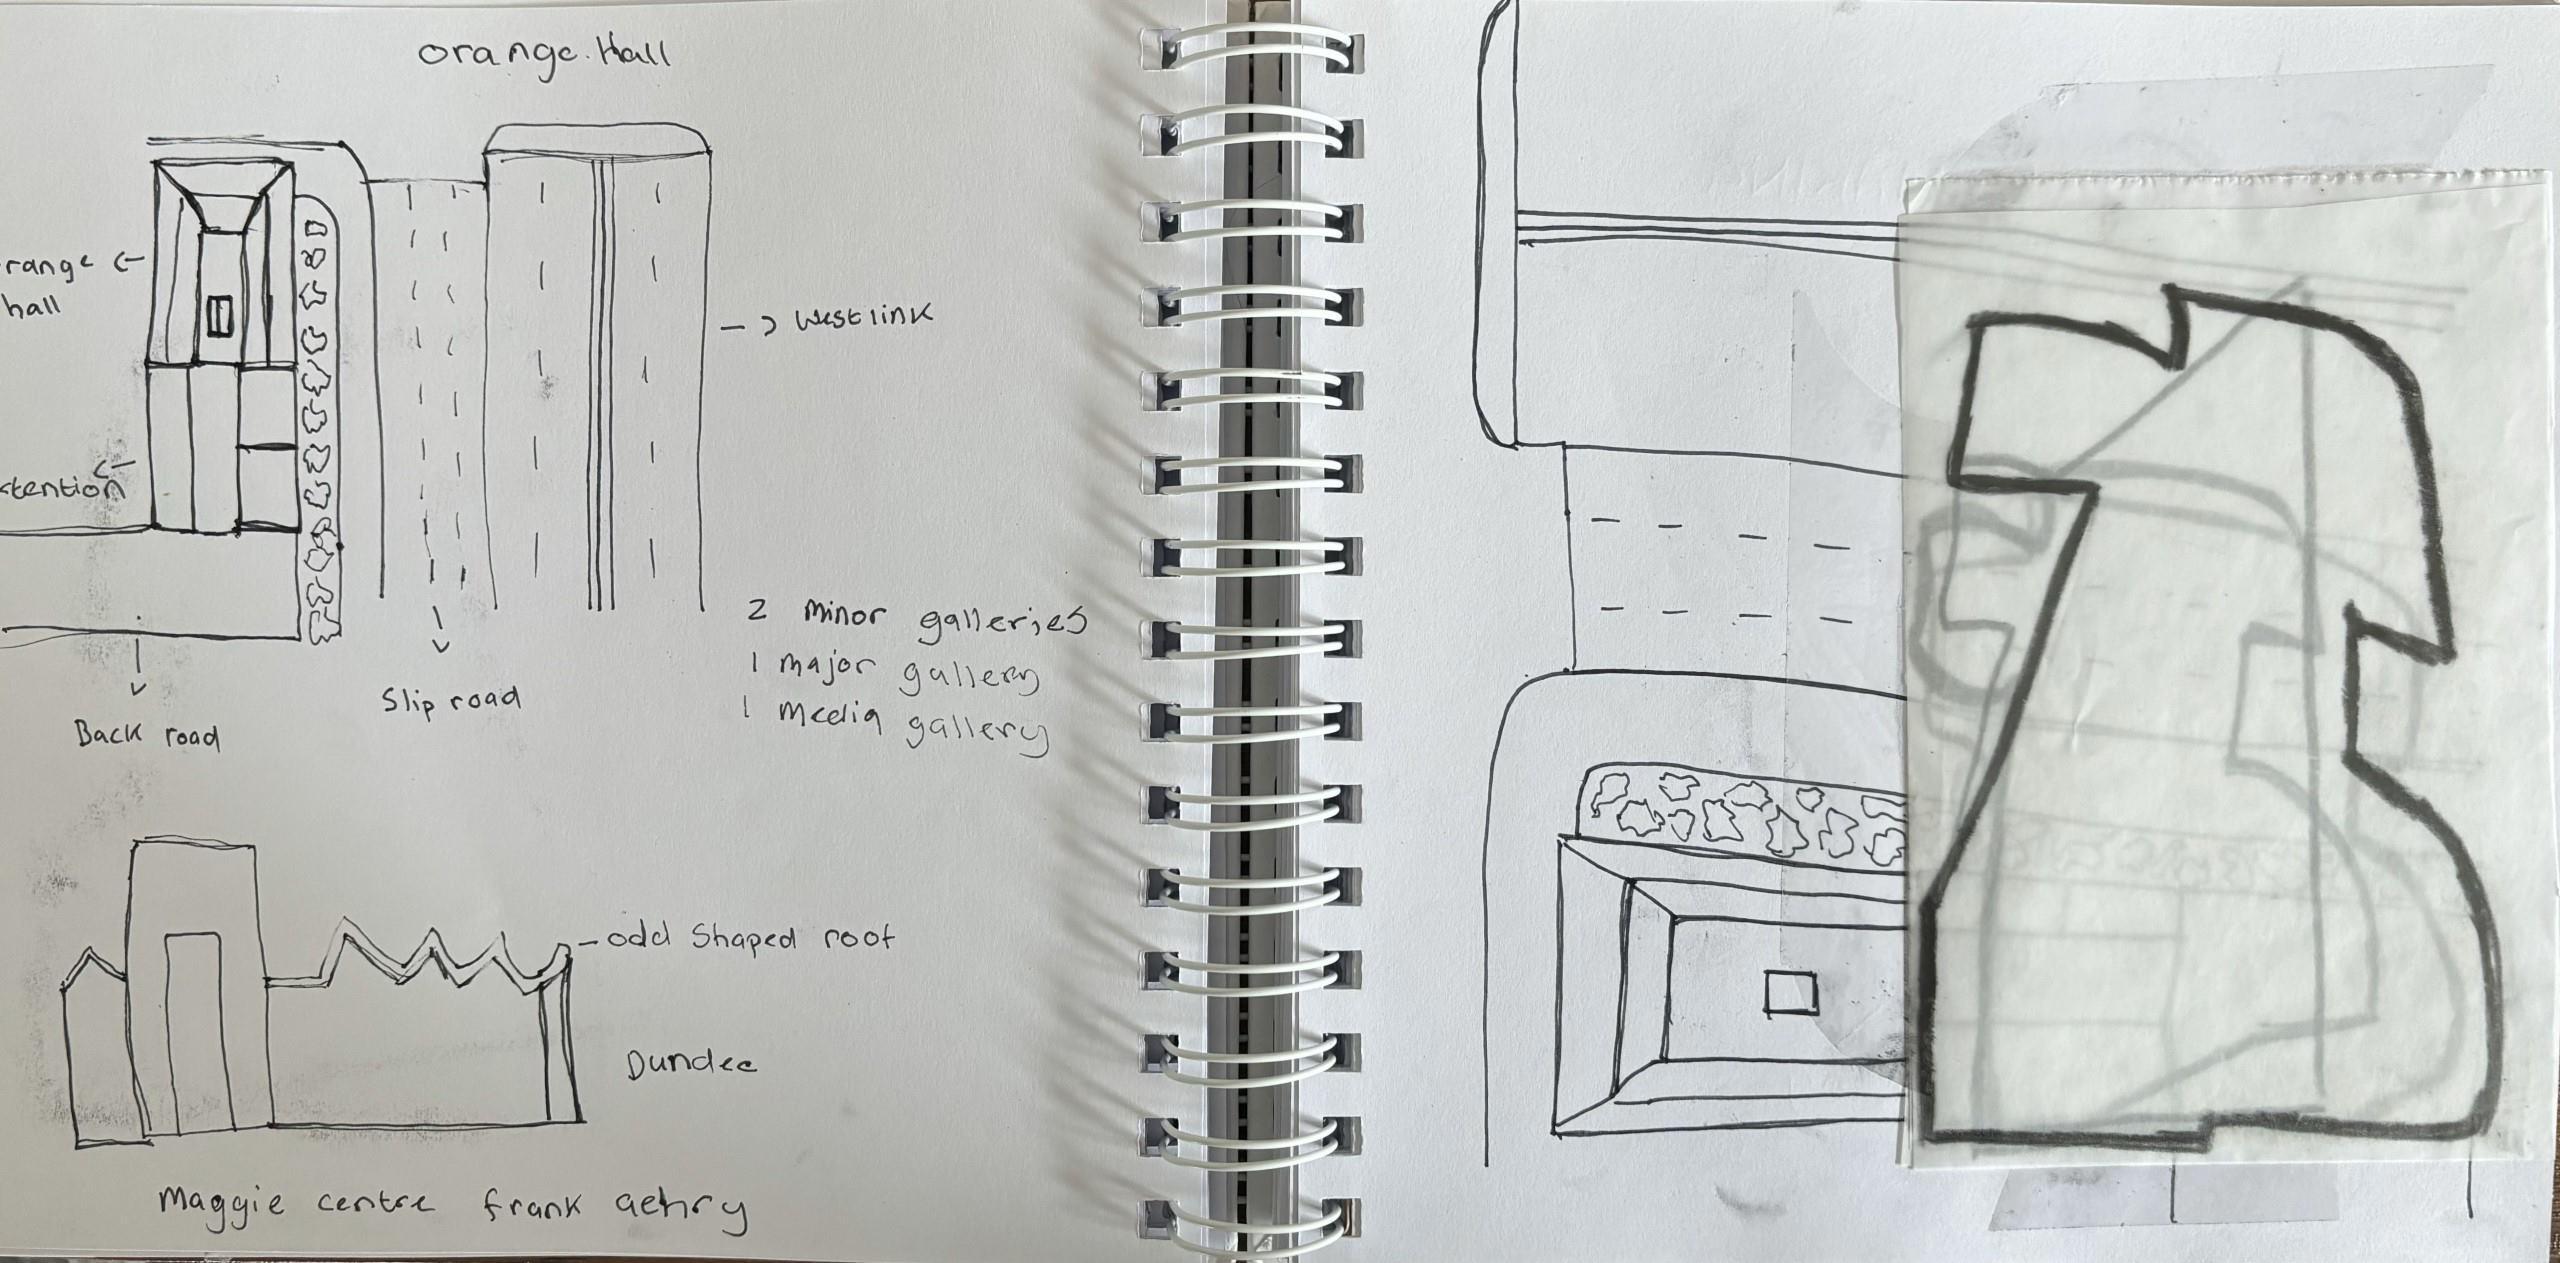 orange. Hall
range
hall
westlink
xtention
2 minor galleries
1 major gallery
1 media gallery
Slip road
Back road
odd Shaped roof
Dundee
Maggie centre frank aehry